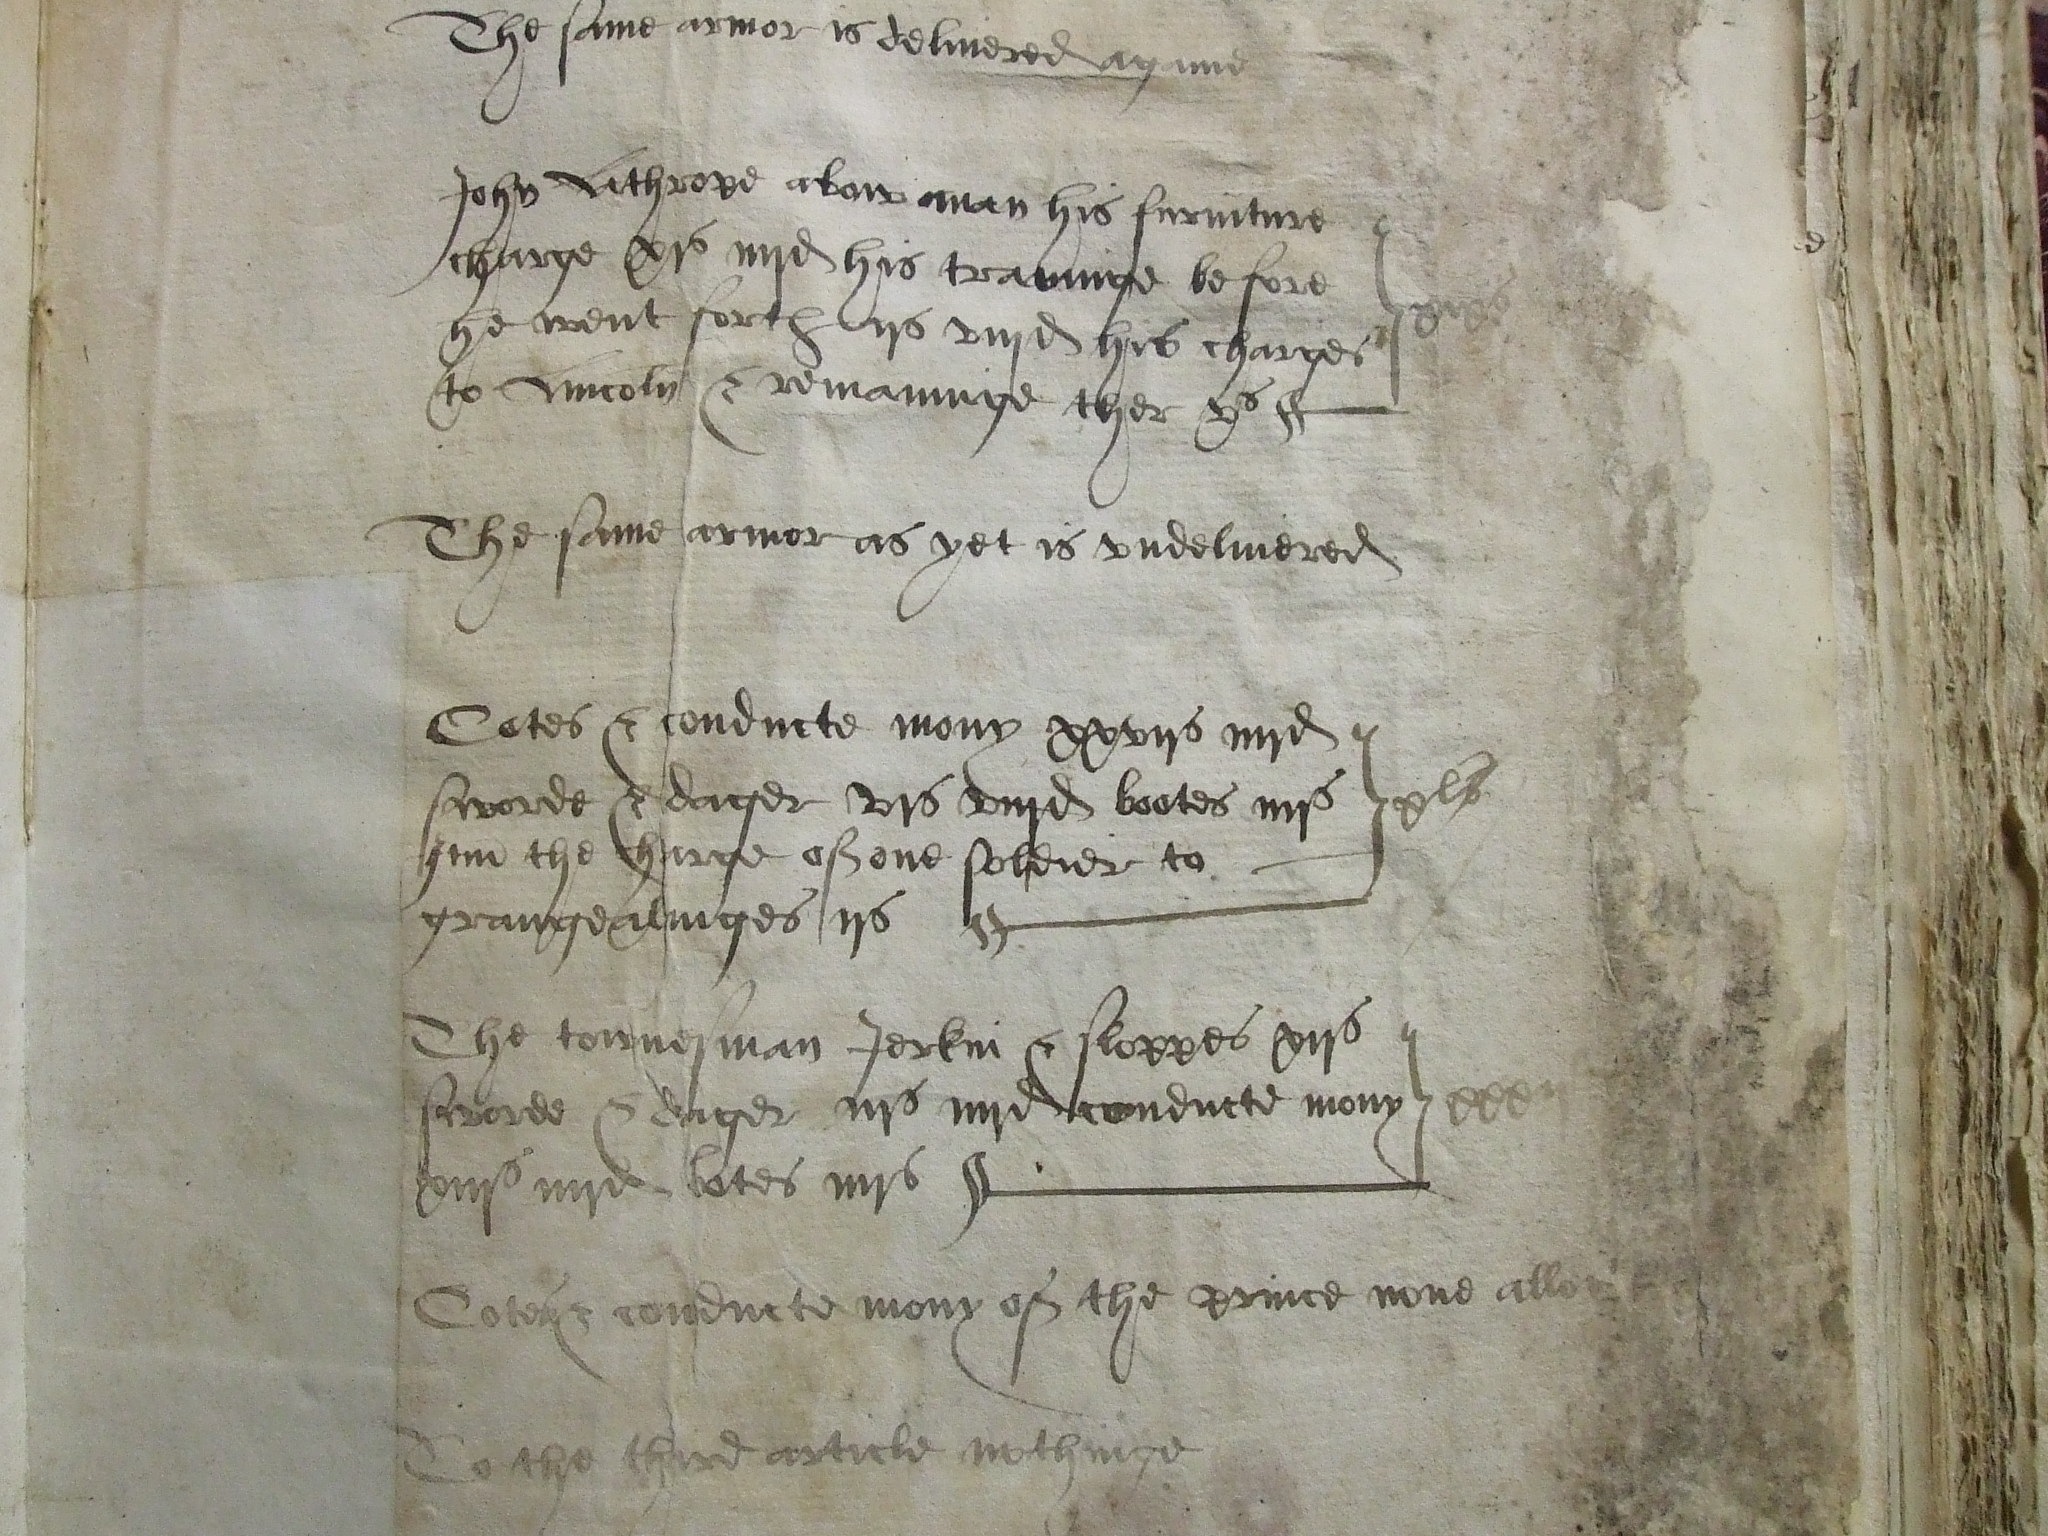 The same armor is delivered agame
John Lithrope a bow man his furniture
charge xjs iiijd his trauinge before
he went forth ijs viijd his charges
to Lincoln & remaininge ther vs
The same armor as yet is vndelivered
Cotes & conducte mony xxvijs iiijd
sworde & dager vjs viijd bootes iiijs xls
the charge of one soldier to
ijs
The townesman Jerkin & sloppes xijs
sworde & dager iijs iiijd conducte mony
xiijs iiijd botes iiijs
Cotes & conducte mony of the prince none
To the third article nothinge